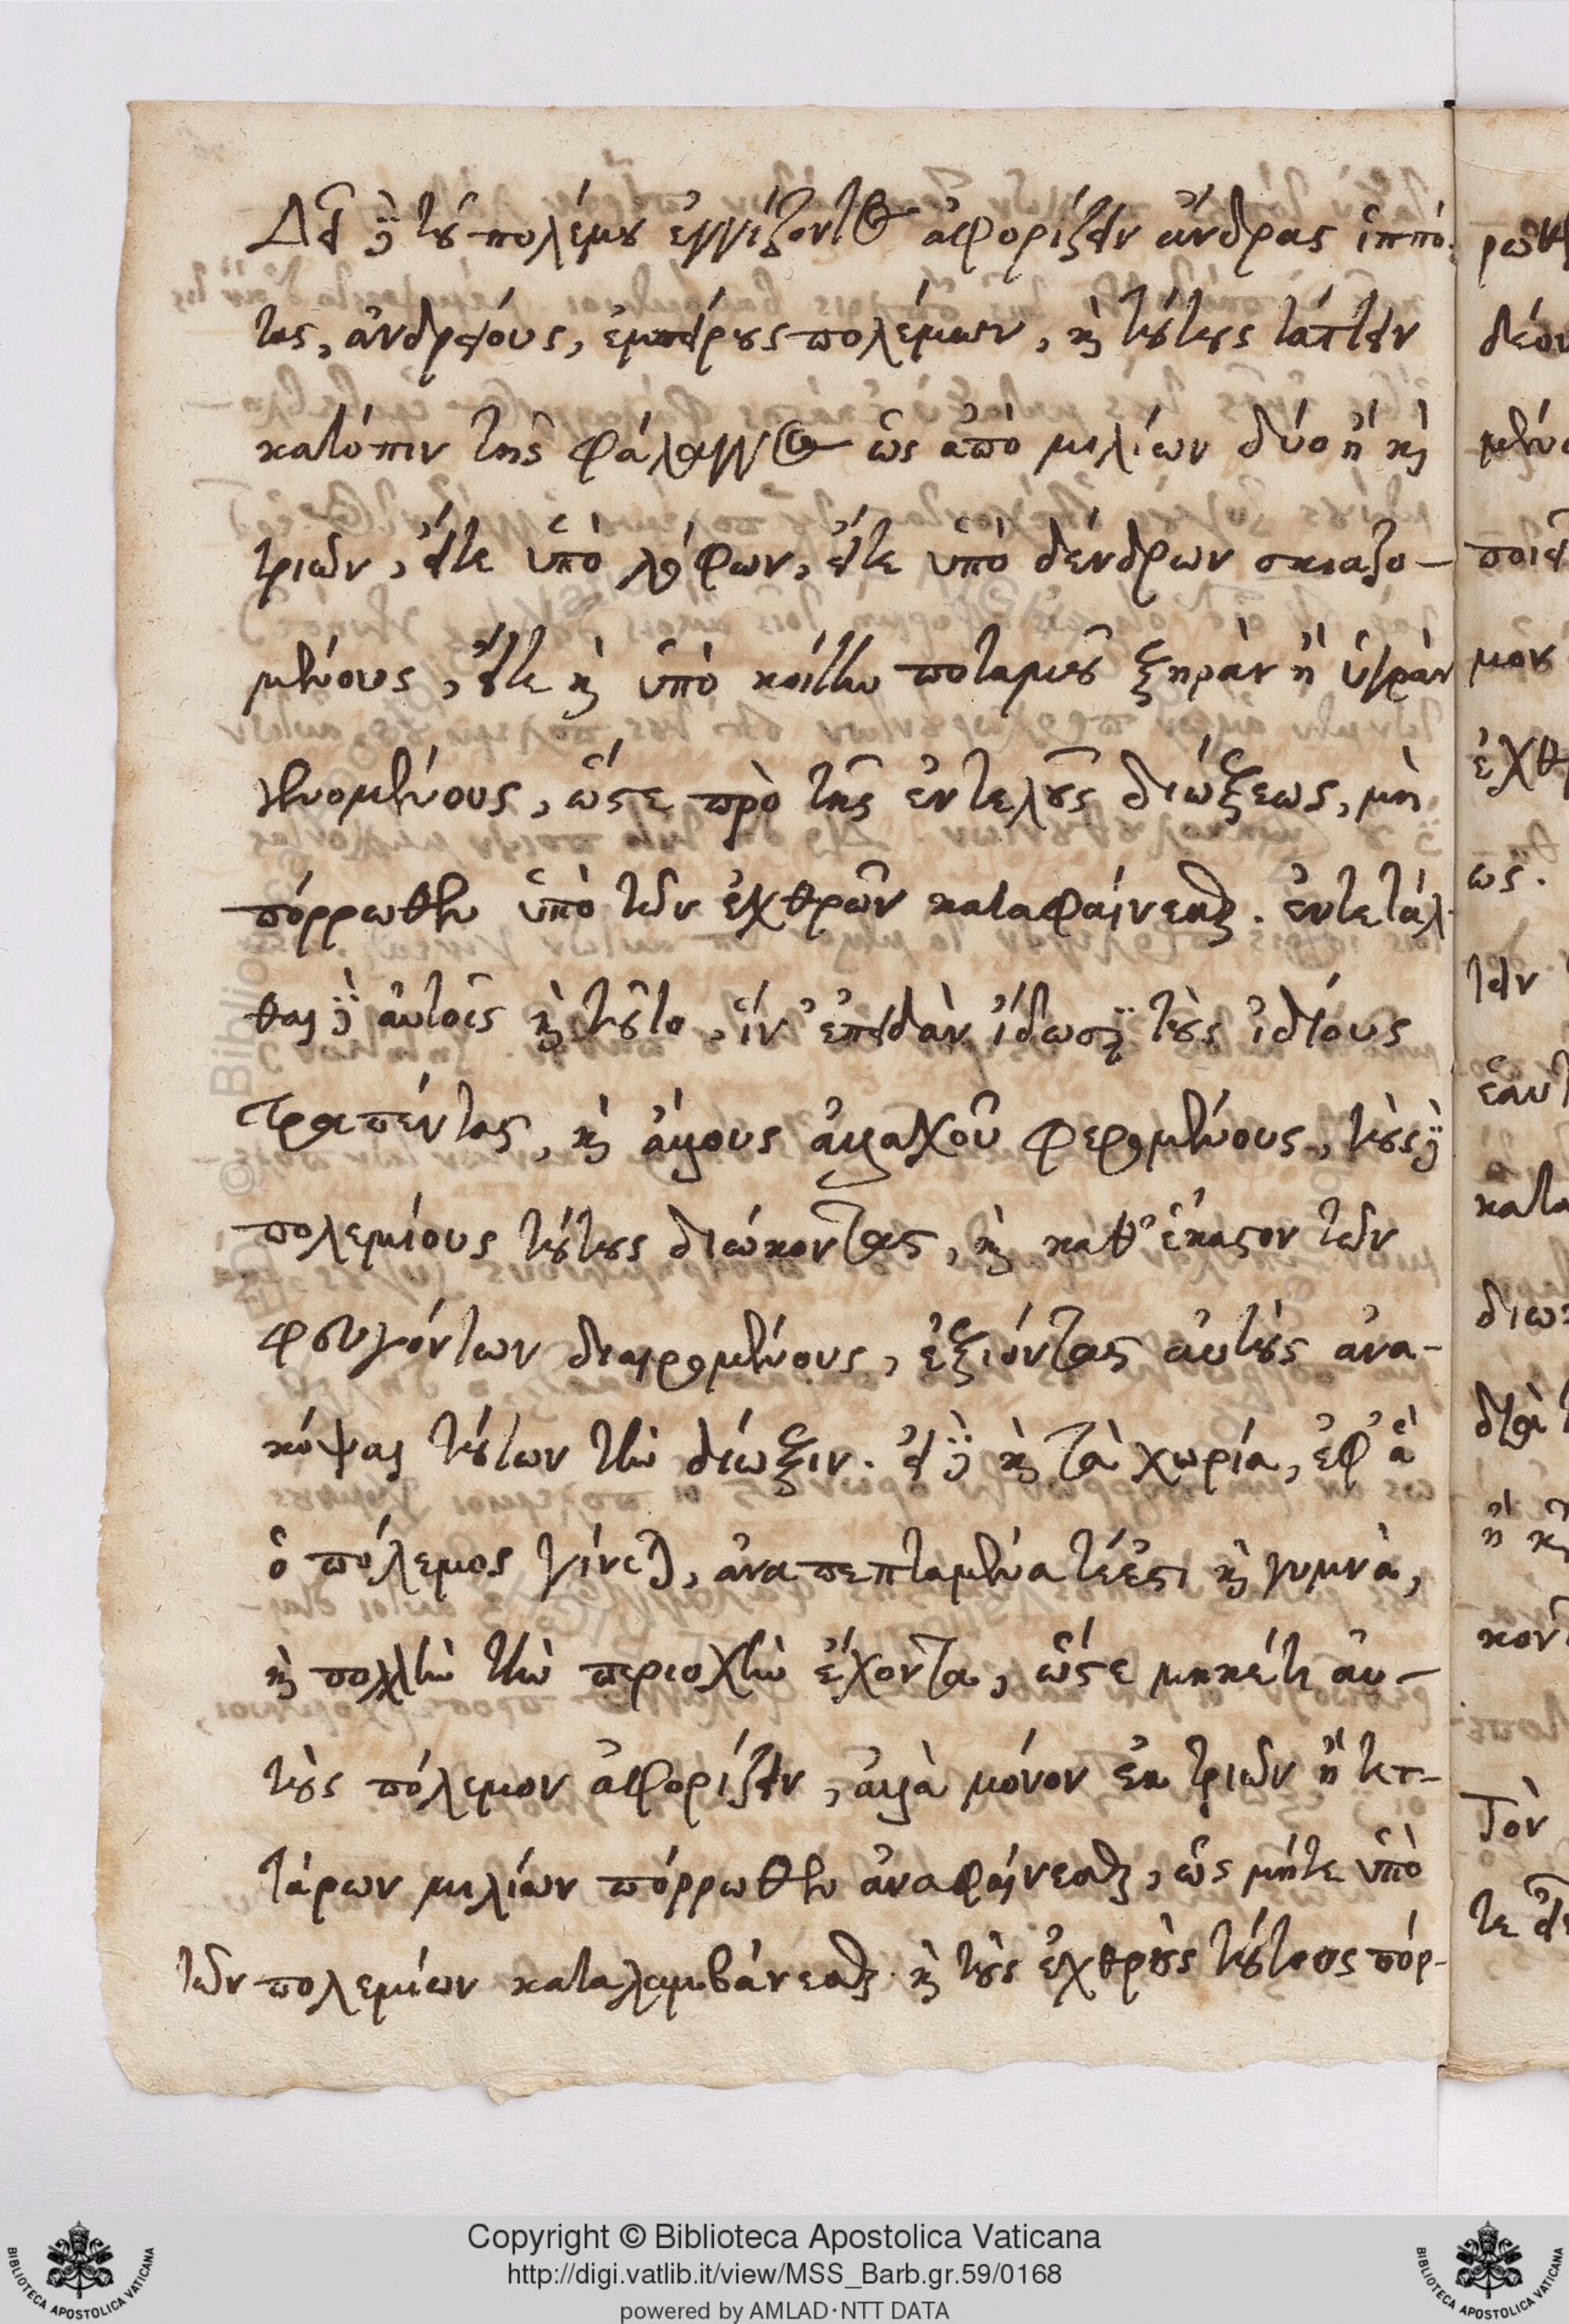 Δεῖ δὲ τοῦ πολέμου ἐγγίζοντος ἀφορίζειν ἄνδρας ἱππό-
τας, ἀνδρείους, ἐμπείρους πολέμων, καὶ τούτους τάττειν
κατόπιν τῆς φάλαγγος ὡς ἀπὸ μιλίων δύο ἢ καὶ
τριῶν, εἴτε ὑπὸ λόφων, εἴτε ὑπὸ δένδρων σκιαζο-
μένους, εἴτε καὶ ὑπὸ κοίτην ποταμοῦ ξηρὰν ἢ ὑγρὰν
γενομένους, ὥστε πρὸ τῆς ἐντελοῦς διώξεως, μὴ
πόρρωθεν ὑπὸ τῶν ἐχθρῶν καταφαίνεσθαι. ἐντετάλ-
θαι δὲ αὐτοῖς καὶ τοῦτο, ἵν' ἐπειδὰν ἴδωσι τοὺς ἰδίους
τραπέντας, καὶ ἄλλους ἀλλαχοῦ φερομένους, τοὺς δὲ
πολεμίους τούτους διώκοντας, καὶ καθ' ἕκαστον τῶν
φευγόντων διαιρομένους, ἐξιόντας αὐτοὺς ἀνα-
κόψαι τούτων τὴν δίωξιν. εἰ δὲ καὶ τὰ χωρία, ἐφ' ἃ
ὁ πόλεμος γίνεται, ἀναπεπταμένα τέ ἐστι καὶ γυμνὰ,
καὶ πολλὴν τὴν περιοχὴν ἔχοντα, ὥστε μηκέτι αὐ-
τοὺς πόλεμον ἀφορίζειν, ἀλλὰ μόνον ἐκ τριῶν ἢ τετ-
τάρων μιλίων πόρρωθεν ἀναφαίνεσθαι, ὡς μήτε ὑπὸ
τῶν πολεμίων καταλαμβάνεσθαι. καὶ τοὺς ἐχθροὺς τούτους πόρ-
ρων
δέον
μέν
ποιεῖ
μον
ἐχθ
ως.
των
ἑαυτ
κατα
διωκ
ἢ κ
κον
Τὸν
τε
Copyright © Biblioteca Apostolica Vaticana
http://digi.vatlib.it/view/MSS_Barb.gr.59/0168
powered by AMLAD·NTT DATA
BIBLIOTECA APOSTOLICA VATICANA
BIBLIOTECA APOSTOLICA VATICANA